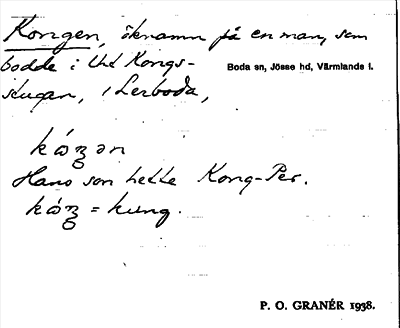 Kongen, öknamn på en man, som
bodde i Kongs-
Boda sn, Jösse hd, Värmlands l.
stugan, i Lerboda,
kóʒən
Hans son hette Kong-Per.
kóʒ = kung.
P. O. GRANÉR 1938.